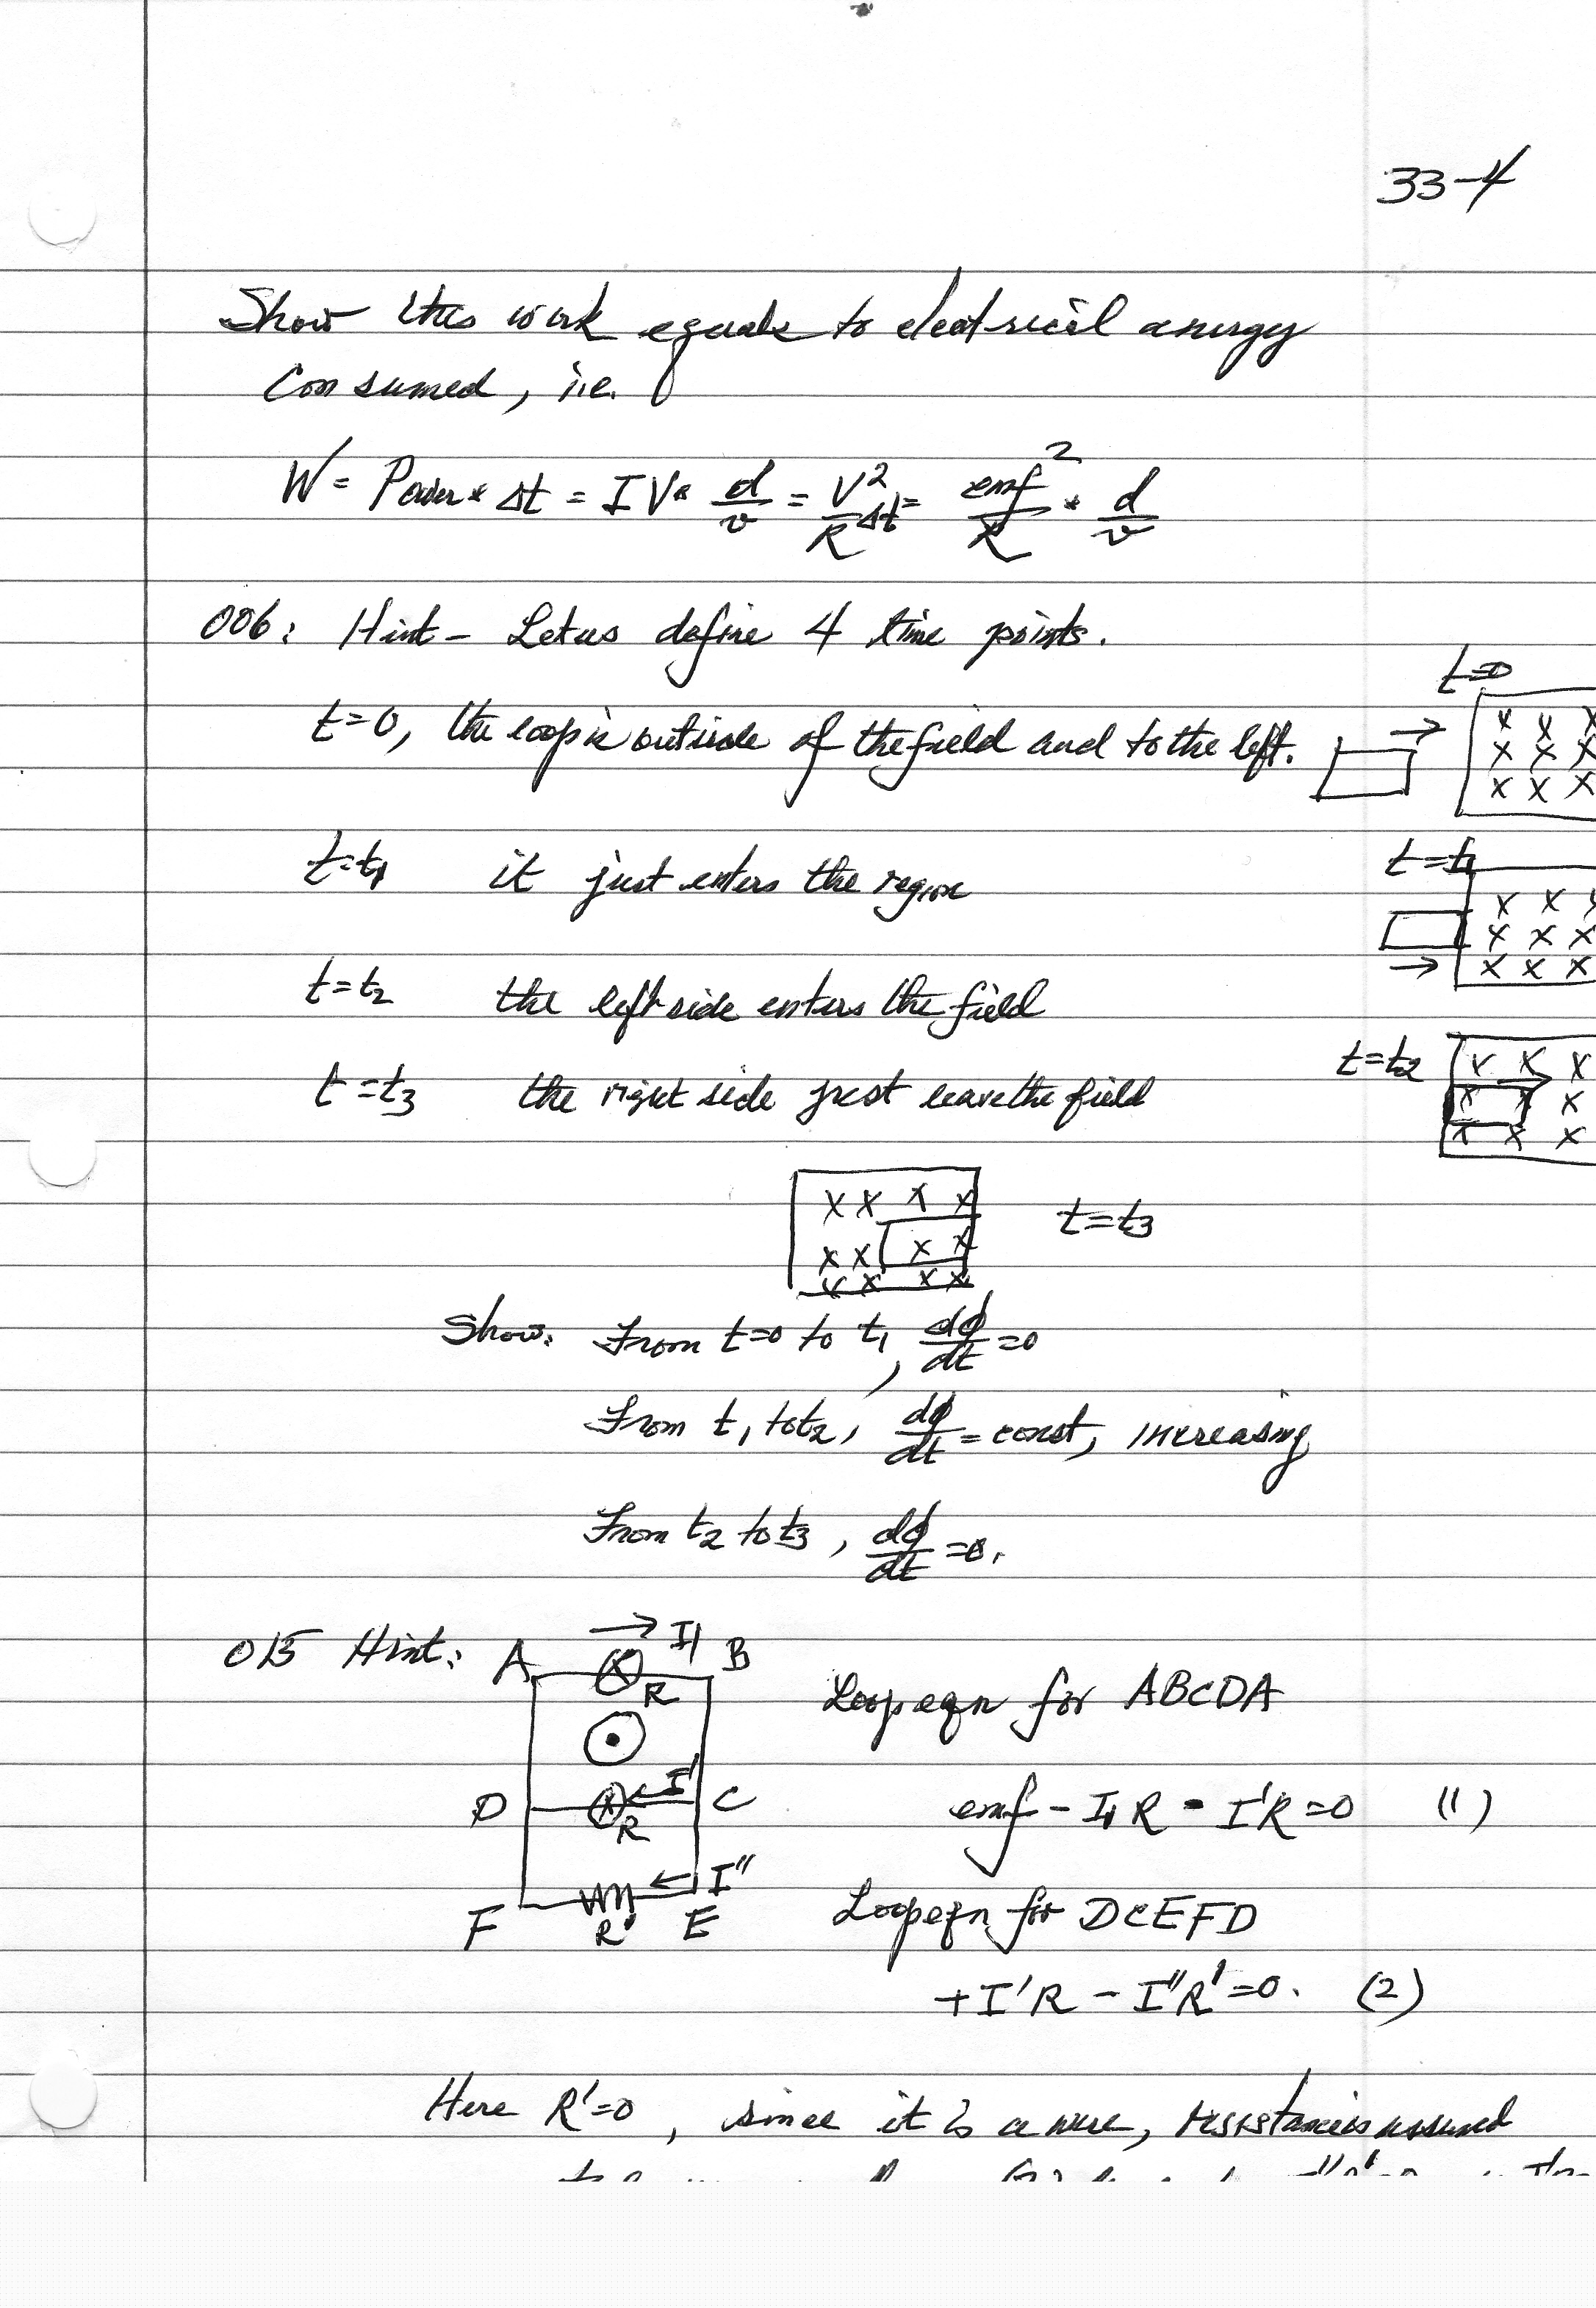 33-4
Show this work equals to electrical energy
Consumed, i.e.
W = Power * Δt = IV * d/v = V²/R Δt = emf²/R * d/v
006: Hint - Let us define 4 time points.
t=0, the loop is outside of the field and to the left.
t=0
x x x
x x x
x x x
t=t₁ it just enters the region
t=t₁
x x x
x x x
x x x
t=t₂ the left side enters the field
t=t₂
x x x
x x x
x x x
t=t₃ the right side just leave the field
x x x x
x x x x
x x x x
t=t₃
Show: From t=0 to t₁, dϕ/dt =0
From t₁ to t₂, dϕ/dt = const, increasing
From t₂ to t₃, dϕ/dt =0.
015 Hint: A I₁ B
R
Loop eqn for ABCDA
D I' C
R
emf - I₁R - I'R =0 (1)
I''
F R' E
Loop eqn for DCEFD
+I'R - I''R' =0. (2)
Here R'=0, since it is a wire, resistance is assumed